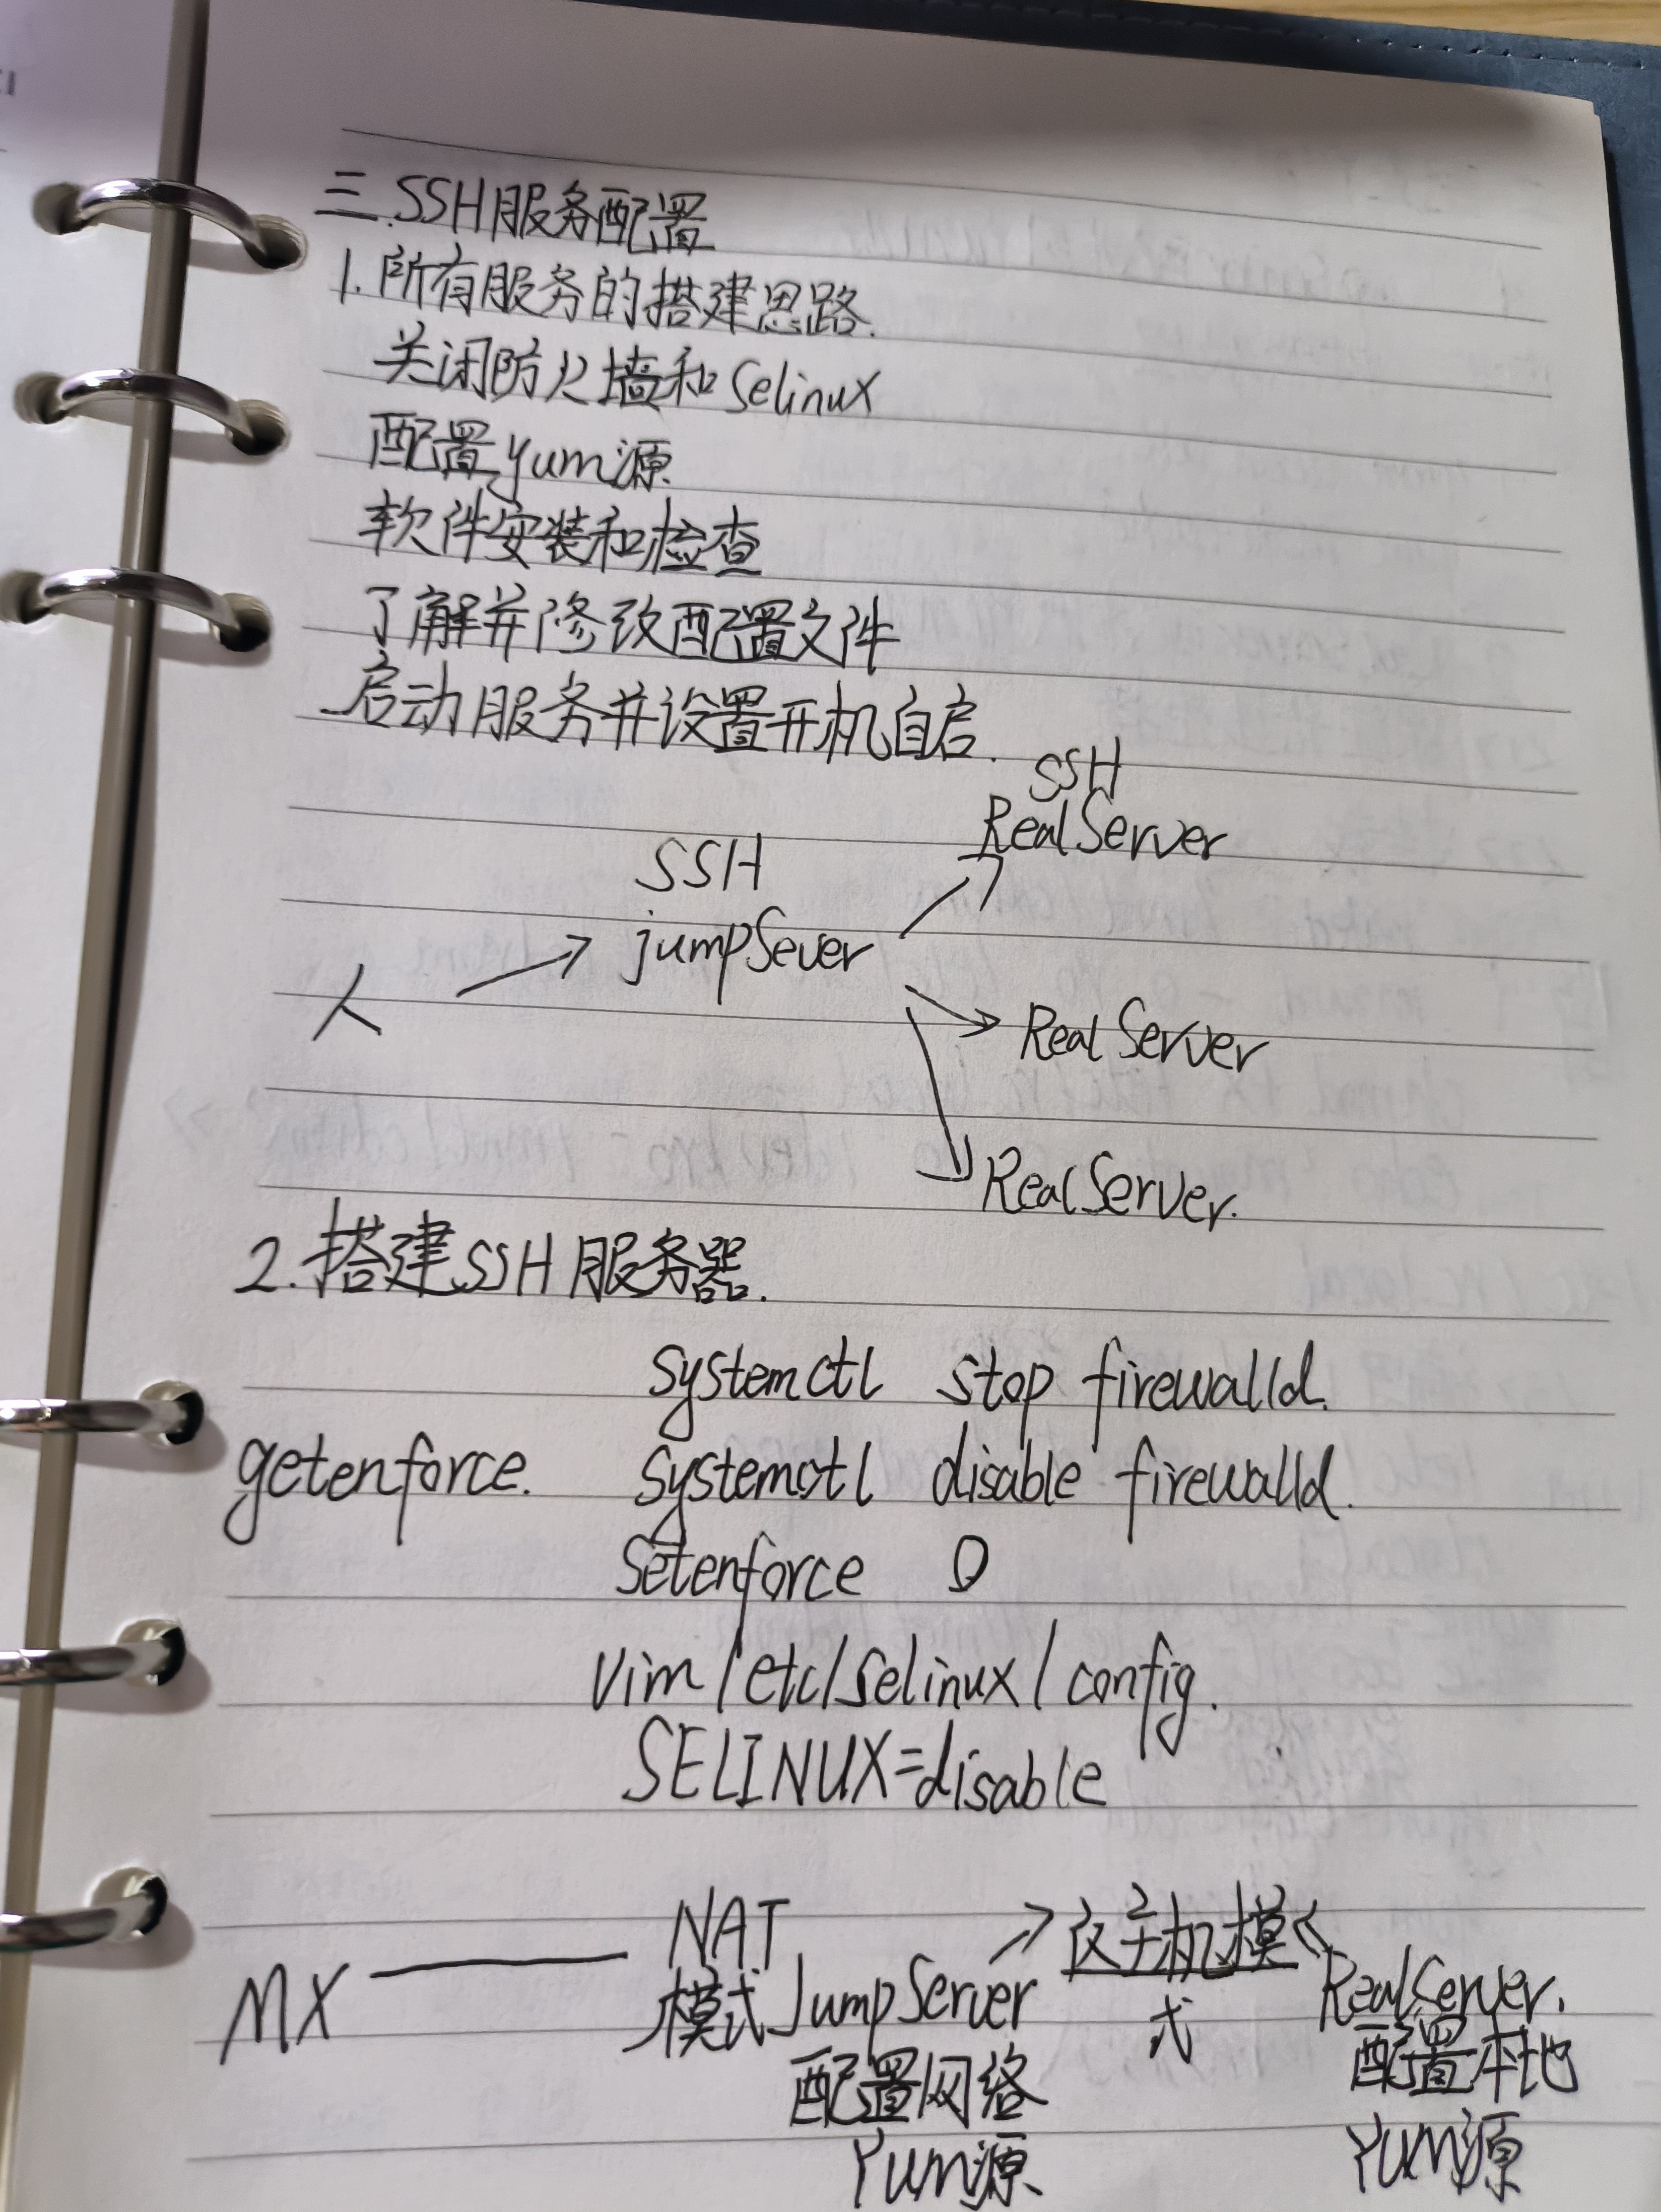 三.SSH服务配置
1.所有服务的搭建思路.
关闭防火墙和Selinux
配置yum源
软件安装和检查
了解并修改配置文件
启动服务并设置开机自启.
SSH
RealServer
SSH
jumpSever
人
RealServer
RealServer.
2.搭建SSH服务器.
systemctl stop firewalld.
getenforce. systemctl disable firewalld.
Setenforce 0
vim /etc/selinux/config.
SELINUX=disable
NAT
模式
MX
JumpServer
配置网络
Yum源
仅主机模
式
RealServer.
配置本地
Yum源